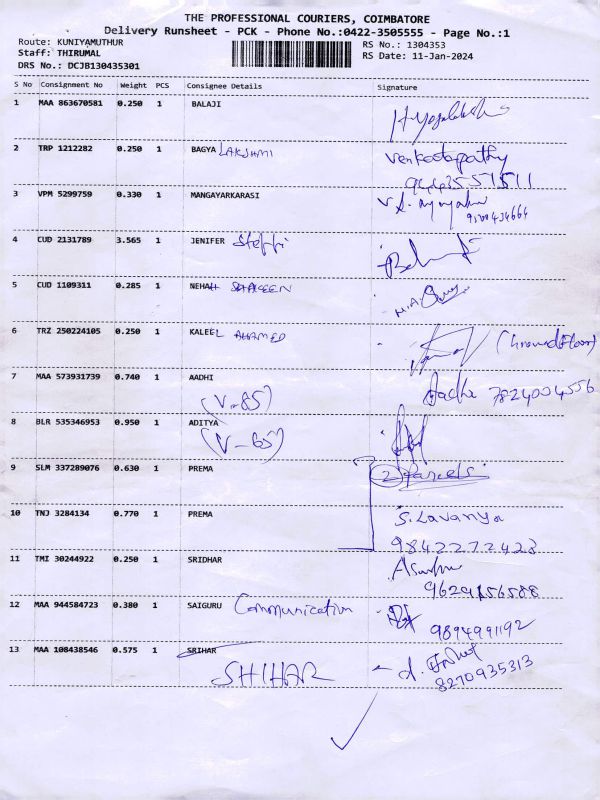 THE PROFESSIONAL COURIERS, COIMBATORE
Delivery Runsheet - PCK - Phone No.:0422-3505555 - Page No.:1
Route: KUNIYAMUTHUR
RS No.: 1304353
Staff: THIRUMAL
RS Date: 11-Jan-2024
DRS No.: DCJB130435301
S No Consignment No Weight PCS Consignee Details Signature
1 MAA 863670581 0.250 1 BALAJI
2 TRP 1212282 0.250 1 BAGYA LAKSHMI Venkatapathy
9443551511
3 VPM 5299759 0.330 1 MANGAYARKARASI
4 CUD 2131789 3.565 1 JENIFER Steffi
5 CUD 1109311 0.285 1 NEHAH SHAKEEN
6 TRZ 250224105 0.250 1 KALEEL AHAMED (Ground Floor)
7 MAA 573931739 0.740 1 AADHI 7824004556
(V-85)
8 BLR 535346953 0.950 1 ADITYA
(V-65)
9 SLM 337289076 0.630 1 PREMA 2 Parcels
10 TNJ 3284134 0.770 1 PREMA S. Lavanya
9842272423
11 TMI 30244922 0.250 1 SRIDHAR
9629156588
12 MAA 944584723 0.380 1 SAIGURU Communication
9894991192
13 MAA 108438546 0.575 1 SRIHAR
SHIHAR 8270935313